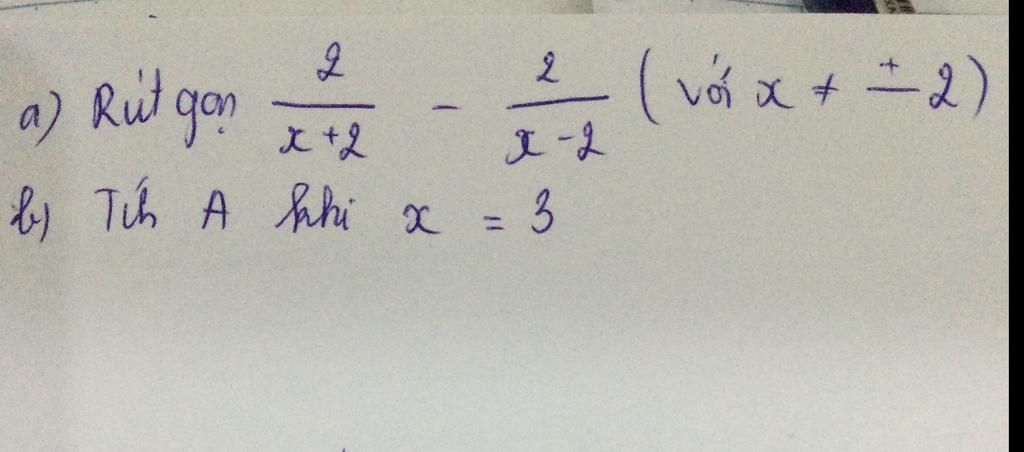 a) Rút gọn \frac{2}{x+2} - \frac{2}{x-2} (với x ≠ ±2)
b) Tíh A khi x = 3